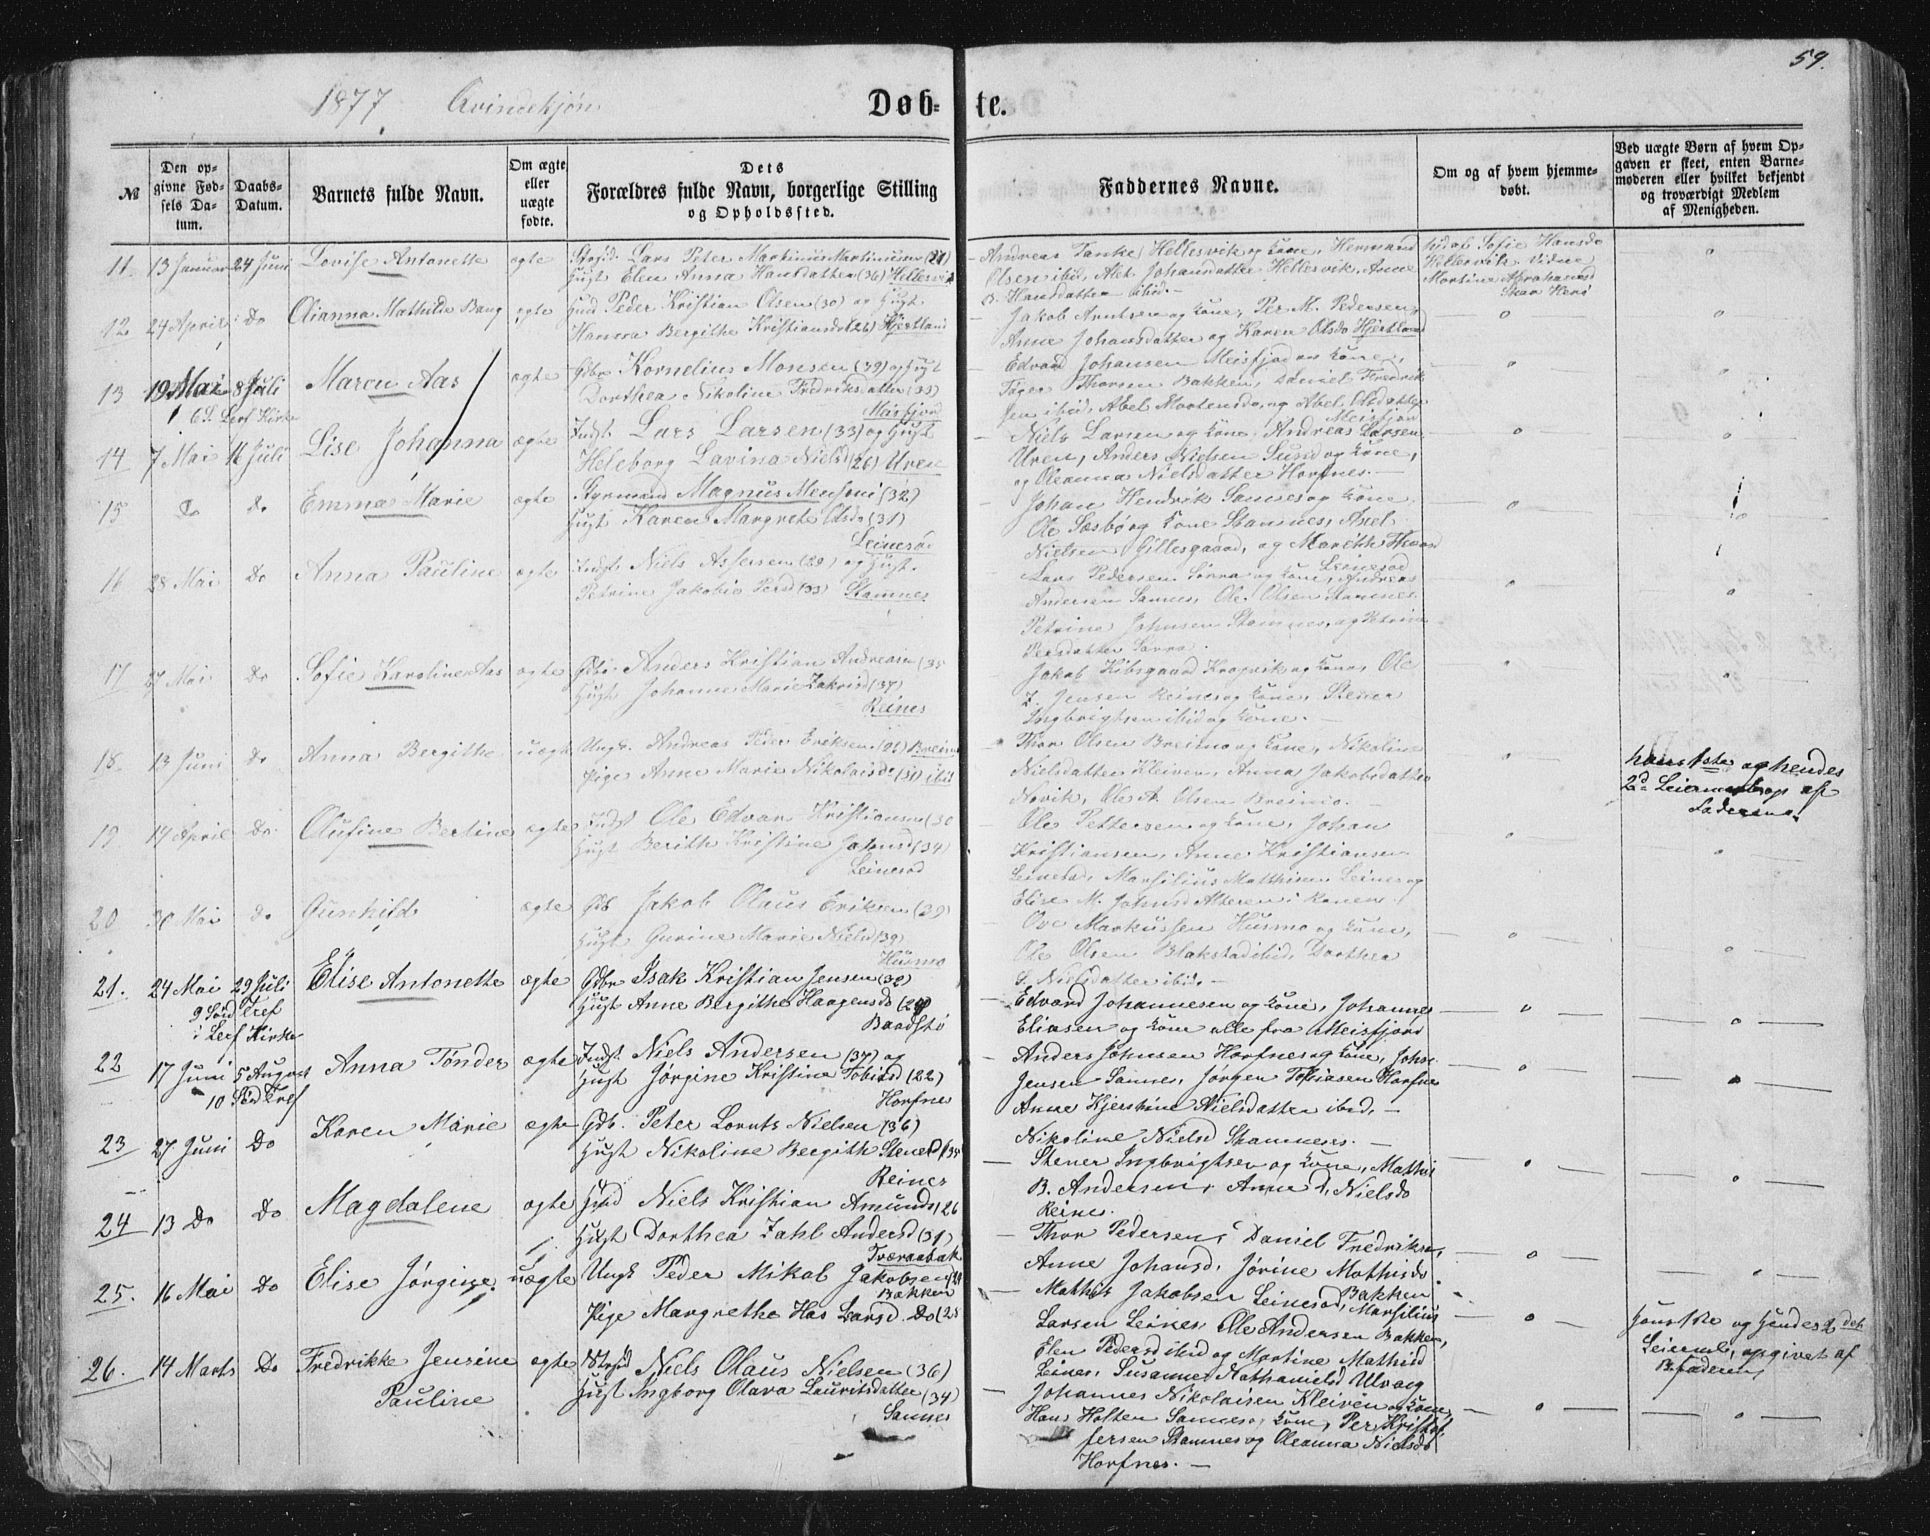 59.
1877 Qvindekjøn
Døb- te.
№
Den opgivne Fødsels Datum.
Daabs-Datum.
Barnets fulde Navn.
Om ægte eller uægte fødte.
Dets Forældres fulde Navn, borgerlige Stilling og Opholdssted.
Faddernes Navne.
Om og af hvem hjemmedøbt.
Ved uægte Børn af hvem Opgaven er skeet, enten Barnemoderen eller hvilket bekjendt og troværdigt Medlem af Menigheden.
11 13 Januar 24 Juni Lovise Antonette ægte Lars Peter Martinus Martinusen
Hugt Elen Anna Hansdatter (36) Hellesvik
Andreas Tanke Hellesvik og Kone, Hermand
Olsen ibid, Alet Johansdatter Hellesvik, Anne
B. Hansdatter ibid. —
Sofie Hansda
Hellesvik
Martine Abrahamsd
12 24 April Do Olianna Mathilde Bang ægte Peder Kristian Olsen (30) og Hugt
Hanna Bergithe Kristiansd (26) Hjertland
Jakob Arntsen og Kone, Per M. Pedersen,
Anne Johansdatter og Karen Olsda Hjertland
13 19 Mai 8 Juli Maren Aas ægte Gdbr Kornelius Monsen (39) og Hugt
6 S. Lerf Kirke
Dorthea Nikoline Fredriksdatter (33)
Meisfjord
Edvard Johansen Meisfjord og Kone,
Thorsen Bakken, Daniel Fredrik
sen ibid, Abel Mortensda, og Abel Olsdatter
Meisfjor
14 7 Mai 16 Juli Lise Johanna ægte Indst Lars Larsen (33) og Hugt
Heleborg Lavina Nielsd (26) Uren
Niels Larsen og Kone, Andreas Larsen
Uren, Anders Nielsen Sund og Kone,
og Oleanna Nielsdatter Horfnes. —
15 Do Do Emma Marie ægte Styrmand Magnus Monsoni (32)
Hugt Karen Margrete Olsda (31)
Leinesod
Johan Hendrik Sannes og Kone
Ole Sæsbø og Kone Stamnes, Axel
Nielsen Gillesgaard, og Marith Thord
Leinesod
16 28 Mai Do Anna Pauline ægte Indst Niels Assersen (29) og Hugt
Petrine Jakobie Persd (33) Stamnes
Lars Pedersen Sørra og Kone, Andreas
Andersen Sannes, Ole Olsen Stamnes
Petrine Johnsen Stamnes, og Petrine
Persdatter Sørra.
17 27 Mai Do Sofie Karoline Aas ægte Gdbr Anders Kristian Andreasen (35
Hugt Johanne Marie Zakrisd (37)
Reines
Jakob Hibsgaard Kragvik og Kone, Ole
Z. Jensen Reines og Kone, Stener
Ingbrigtsen ibid og Kone. —
18 13 Juni Do Anna Bergithe uægte Ungk. Andreas Peder Eriksen (26) Breimo
Pige Anne Marie Nikolaisd (31) ibid
Thor Olsen Breimo og Kone, Nikoline
Nielsdatter Kleiven, Anna Jakobsdatter
Novik, Ole A. Olsen Breimo.
hans 1ste og hendes
2d Leiermaal, op af
Faderen
19 14 April Do Olufine Bertine ægte Indst Ole Edvar Kristiansen (30
Hugt Berith Kristine Johansd (34)
Leinesod
Ole Pettersen og Kone, Johan
Kristiansen, Anne Kristiansen
Leinesod, Marsilius Mathisen Leines og
Elise M. Johnsdatteren i Ranen.
20 30 Mai Do Gunhild ægte Gdb Jakob Olaus Eriksen (39)
Hugt Gurine Marie Nielsd (39)
Husmo
Ove Markussen Husmo og Kone,
Ole Olsen Blakstad ibid, Dorthea
S. Nielsdatter ibid. —
21. 24 Mai 29 Juli Elise Antonette ægte Gdbr Isak Kristian Jensen (30)
9 Sønd Tref
i Lerf Kirke
Hugt Anne Bergithe Haagensda (29)
Baadstø
— Edvard Johannesen og Kone, Johannes
Eliasen og Kone alle fra Meisfjord
22 17 Juni 5 August Anna Tønder ægte Indst. Niels Andersen (37) og
10 Sønd Tref
Hugt Jørgine Kristine Tobiasd (22)
Horfnes
— Anders Johnsen Horfnes og Kone, Johs.
Jensen Sannes, Jørgen Tobiasen Horfnes
Anne Kjerstine Nielsdatter ibid, —
Nikoline Nielsd Stamnes. —
23 27 Juni Do Karen Marie ægte Gdb. Peter Lornts Nielsen (36)
Hugt Nikoline Bergith Stenersd (34
Reines
— Stener Ingbrigtsen og Kone, Mathis
B. Andersen, Anne d. Nielsda
Reines.
24 13 Do Do Magdalene ægte Niels Kristian Amunds (26
Hugt Dorthea Zahl Andersd (31)
Tværaabak
— Thor Pedersen, Daniel Fredriksen,
Anne Johansd, Jørine Mathisda
Bakken
25. 16 Mai Do Elise Jørgine uægte Ungk Peder Mikal Jakobsen (29
Bakken
Pige Margrethe Has Larsd. Do (25
— Mathis Jakobsen Leinesod, Marsilius
Larsen Leines, Ole Andersen Bakken,
Elen Pedersd ibid og Martine Mathisd
Leines, Susanne Nathanielsd Ulvang
hans 1ste og hendes 2det
Leierml, opgivet af
B.faderen
26. 14 Marts Do Fredrikke Jensine Pauline ægte Niels Olaus Nielsen (36)
Hugt Ingborg Olava Lauritsdatter (34)
Sannes
— Johannes Nikolaisen Kleiven og Kone,
Hans Holten Sannes og Kone, Per Kristof
fersen Stamnes og Oleanna Nielsda
Horfnes. —